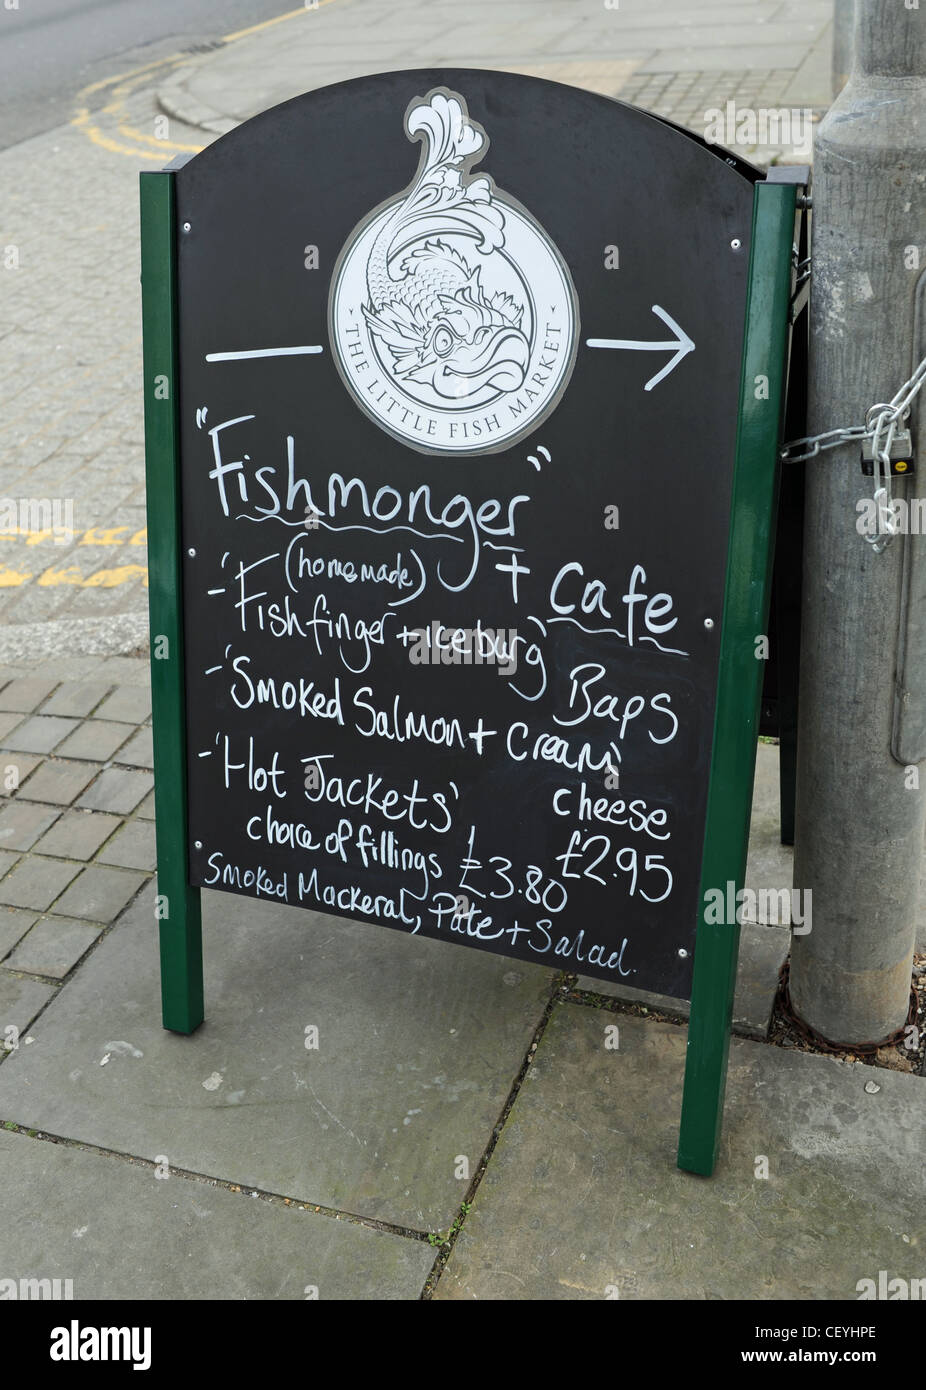 THE LITTLE FISH MARKET
"Fishmonger"
+ cafe
(homemade)
-'Fishfinger + iceburg'
Baps
-'Smoked Salmon + Cream'
cheese
£2.95
-'Hot Jackets'
choice of fillings £3.80
Smoked Mackeral, Pate + Salad.
a alamy
alamy stock photo
Image ID: CEYHPE
www.alamy.com